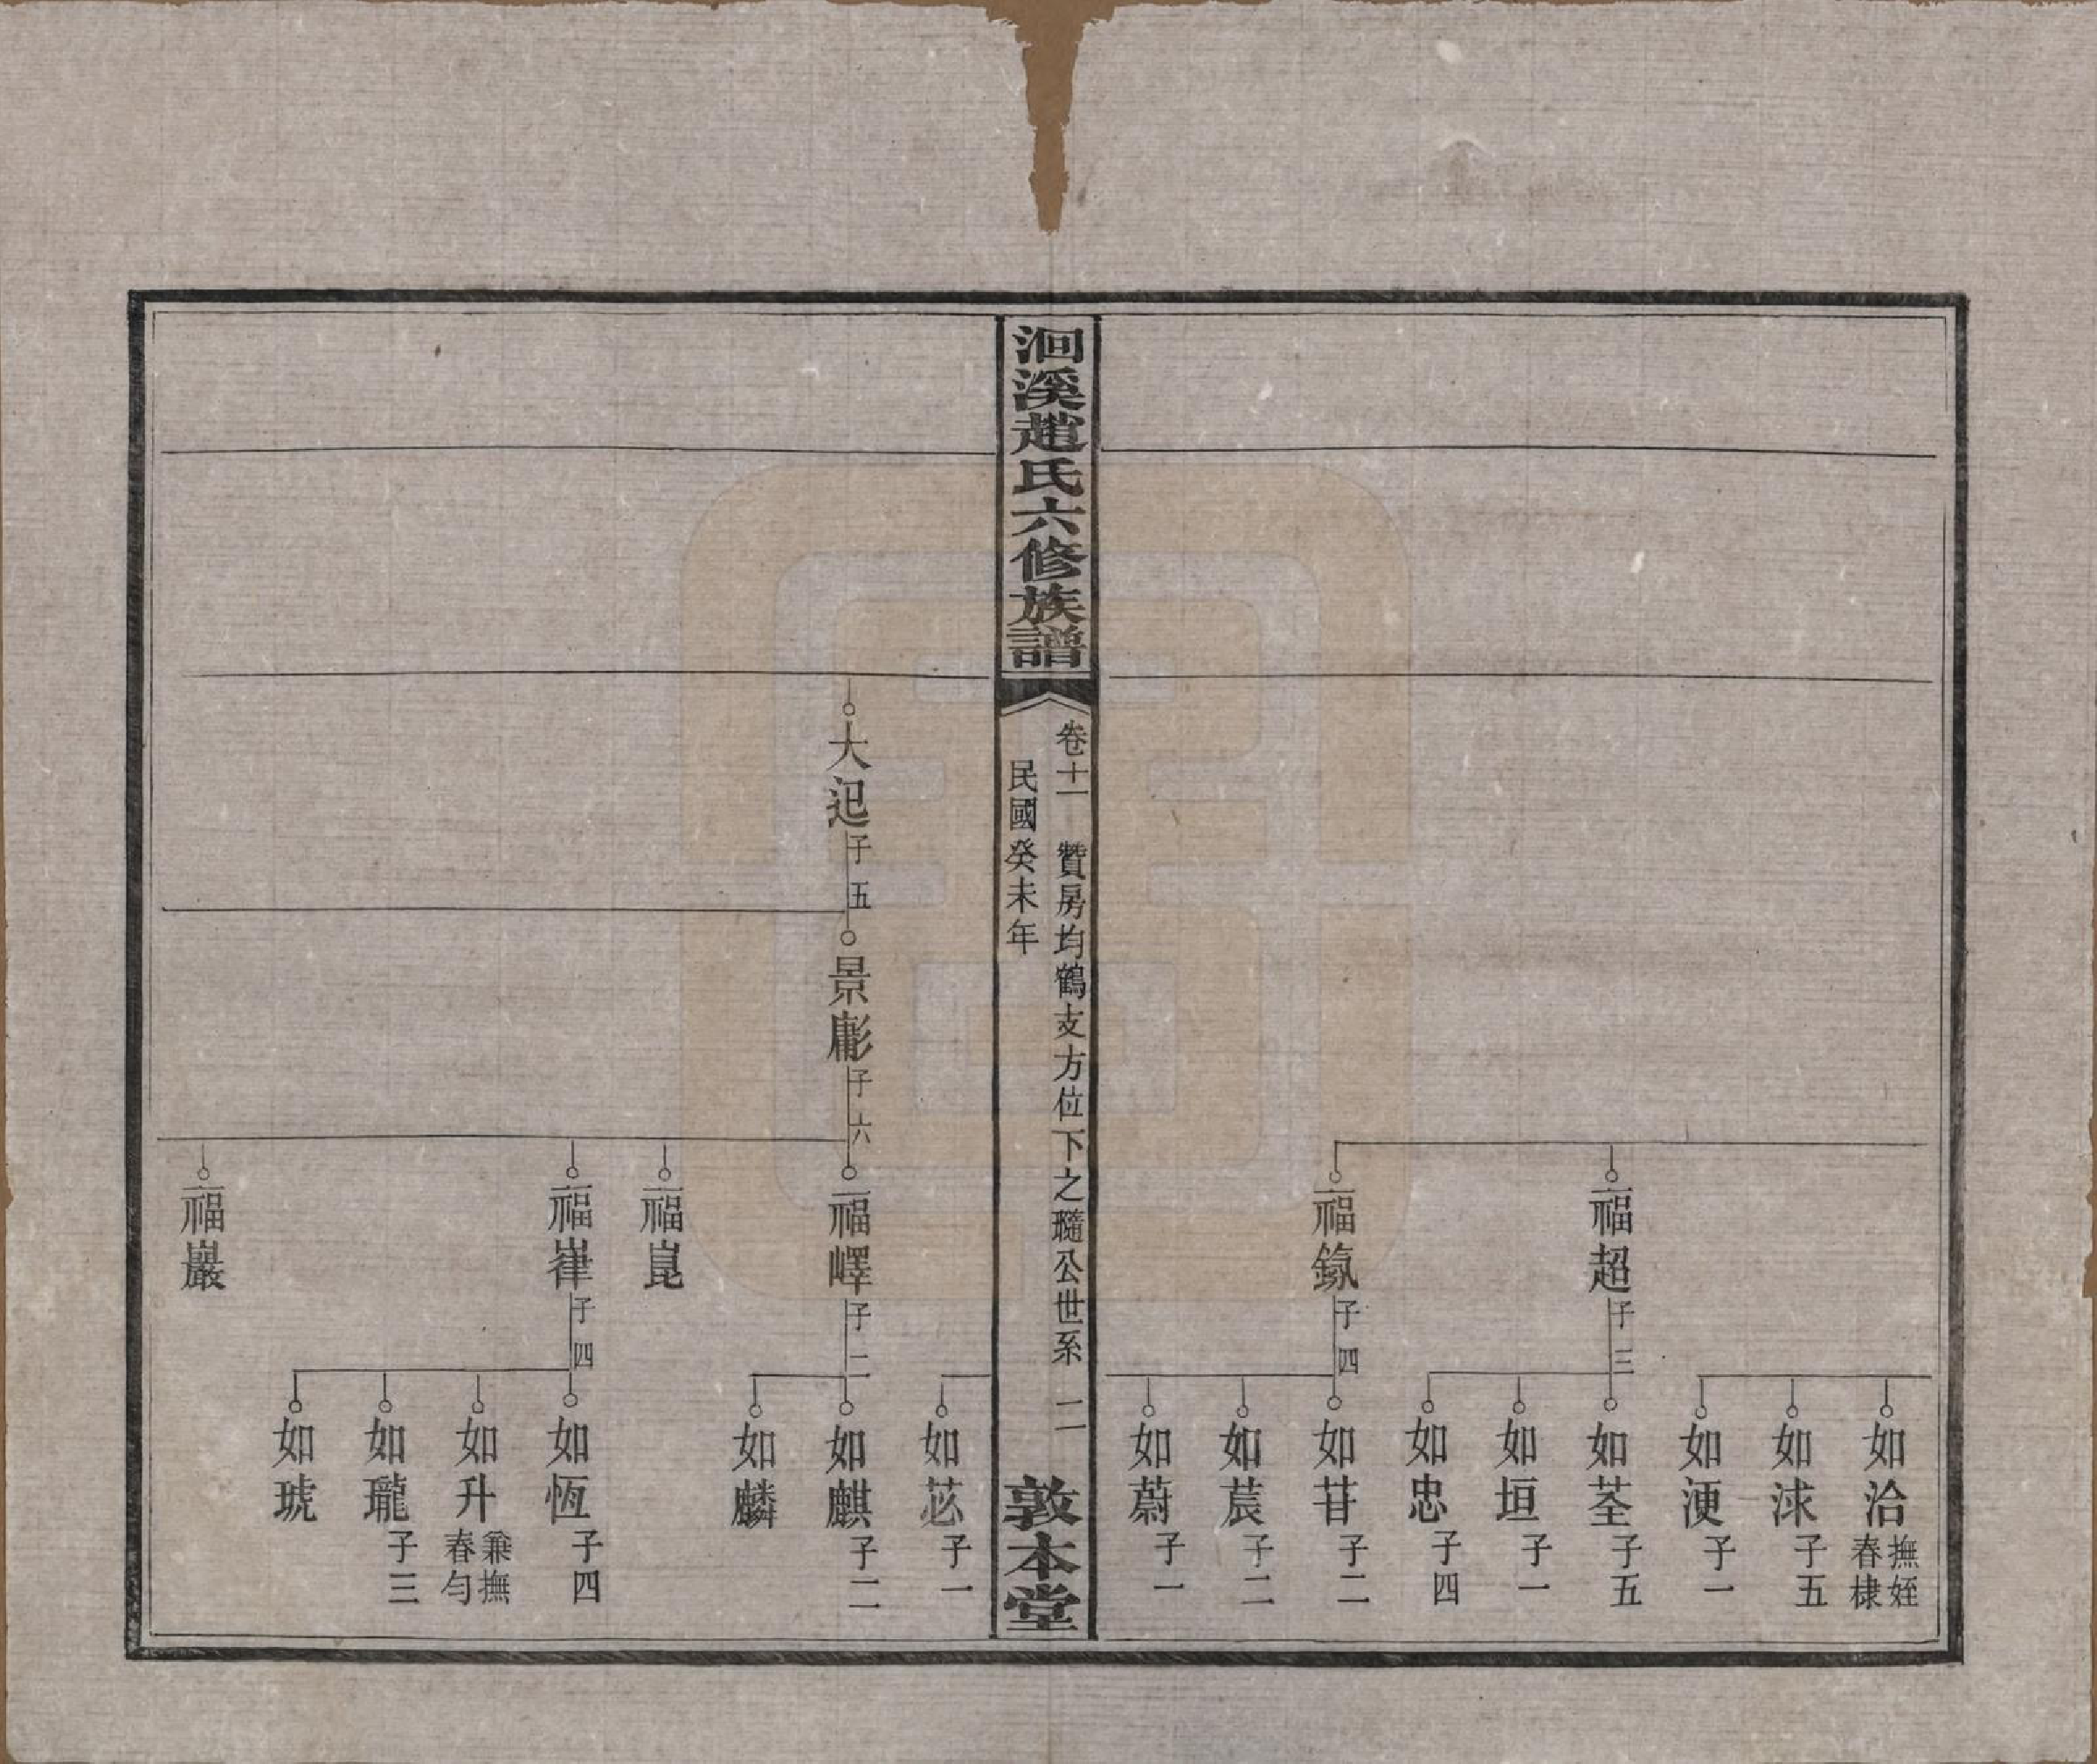 如洽 撫姪春棣
如浗 子五
如浭 子一
福超 子三
如荃 子五
如垣 子一
如忠 子四
子四
如苷 子二
如莀 子二
如蔚 子一
洄溪趙氏六修族譜
卷十一 贊房均鶴支方位下之隨公世系 二
民國癸未年
敦本堂
如苾 子一
大𨑔 子五
景彪 子六
福嶧 子二
如麒 子二
如麟
福崑
福嵂 子四
如恆 子四
如升 兼撫春勻
如瓏 子三
如琥
福巖